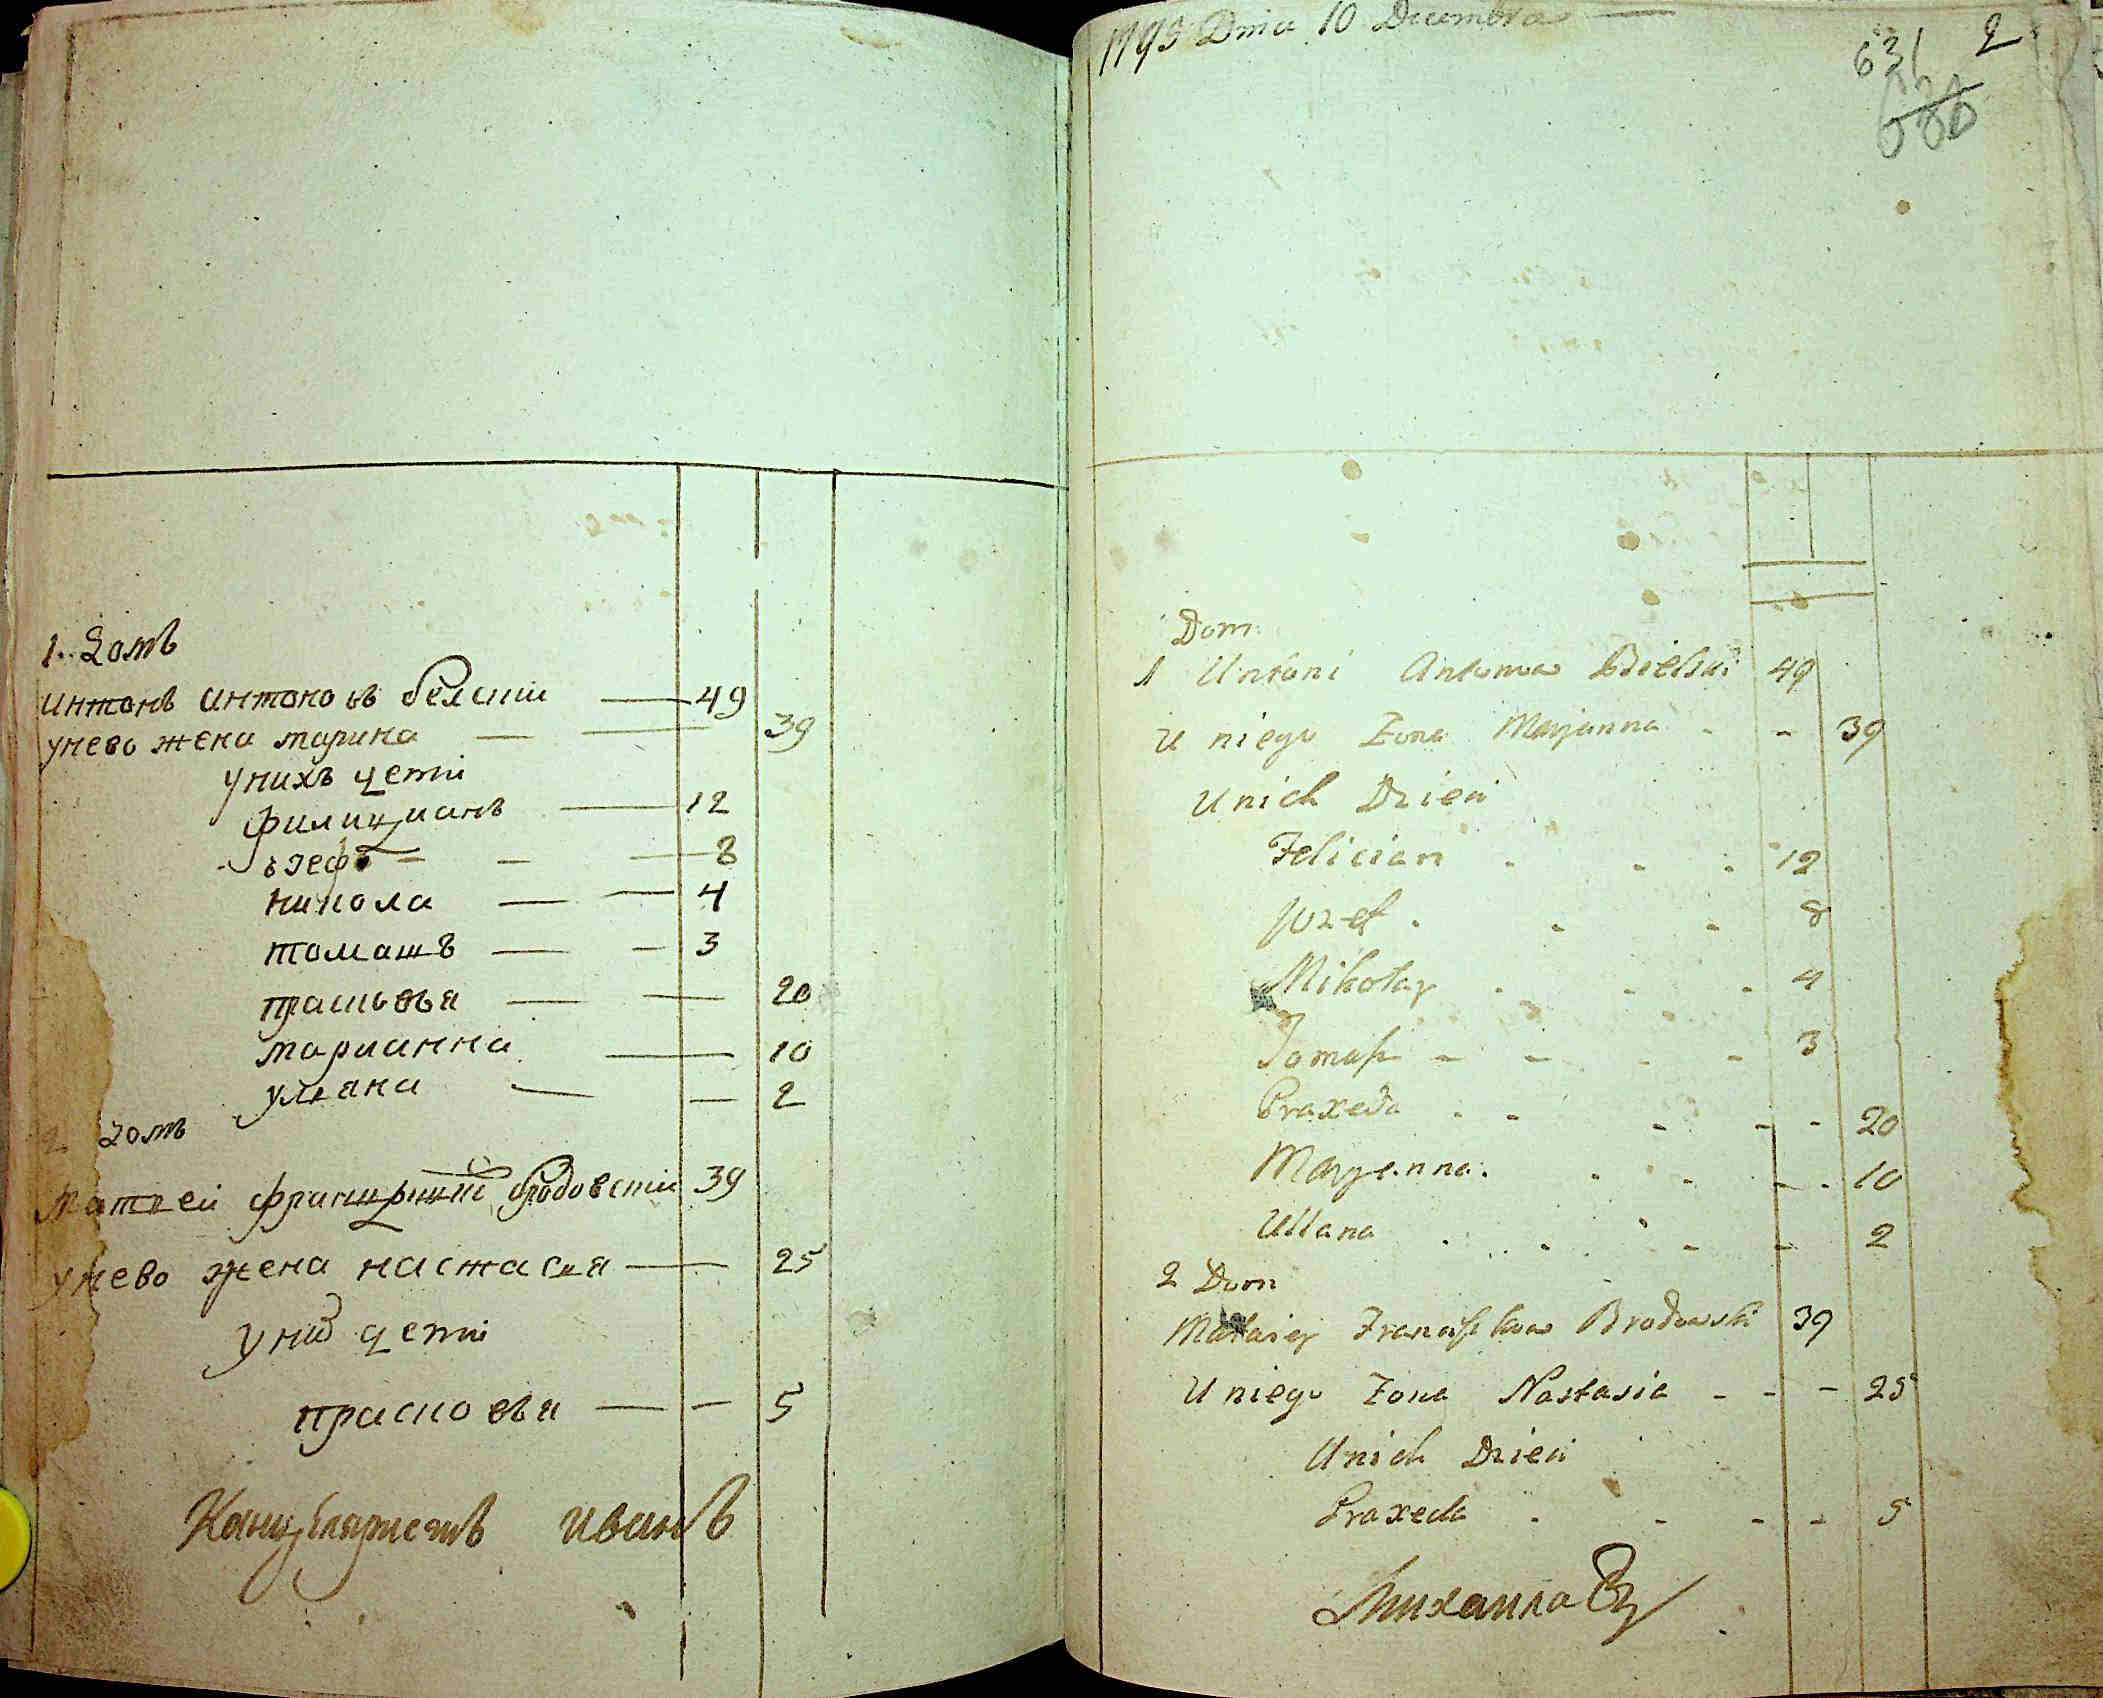 1. домъ
интонъ интоновъ белский 49
унево жена марина 39
унихъ дети
филицианъ 12
ъзефъ 8
никола 4
томашъ 3
прасковья 20
марианна 10
уляна 2
2 домъ
матвей бродовский 39
унево жена настасья 25
дети
прасковья 5
Канцеляристъ иванъ
1795 Dnia 10 Decembra
631 2
630
Dom
1 Antoni Antonow Bielski 49
U niego Zona Maryanna 39
Unich Dzieci
Felician 12
Jozef 8
Mikołay 4
Tomasz 3
Praxeda 20
Maryanna 10
Ullana 2
2 Dom
Maciey Brodowski 39
U niego Zona Nastasia 25
Unich Dzieci
Praxeda 5
Михаила